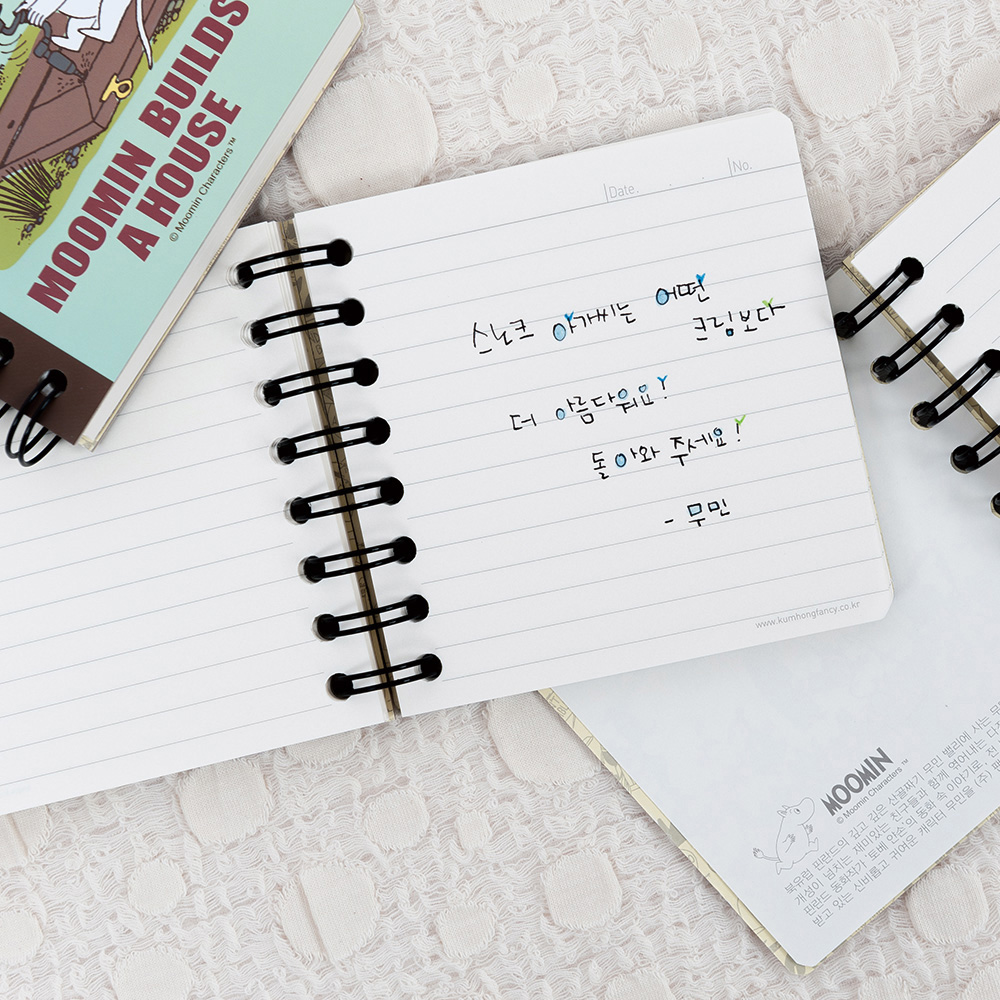 MOOMIN BUILDS
A HOUSE
© Moomin Characters™
Date. . .
No.
스노크 아가씨는 어떤
크림보다
더 아름다워요!
돌아와 주세요!
- 무민
www.kumhongfancy.co.kr
MOOMIN
© Moomin Characters™
북유럽 핀란드의 깊고 깊은 산골짜기 무민 밸리에 사는 무
개성이 넘치는 재미있는 친구들과 함께 엮어내는 다
핀란드 동화작가 '토베 얀손'의 동화 속 이야기로, 전
받고 있는 신비롭고 귀여운 캐릭터 무민을 (주)